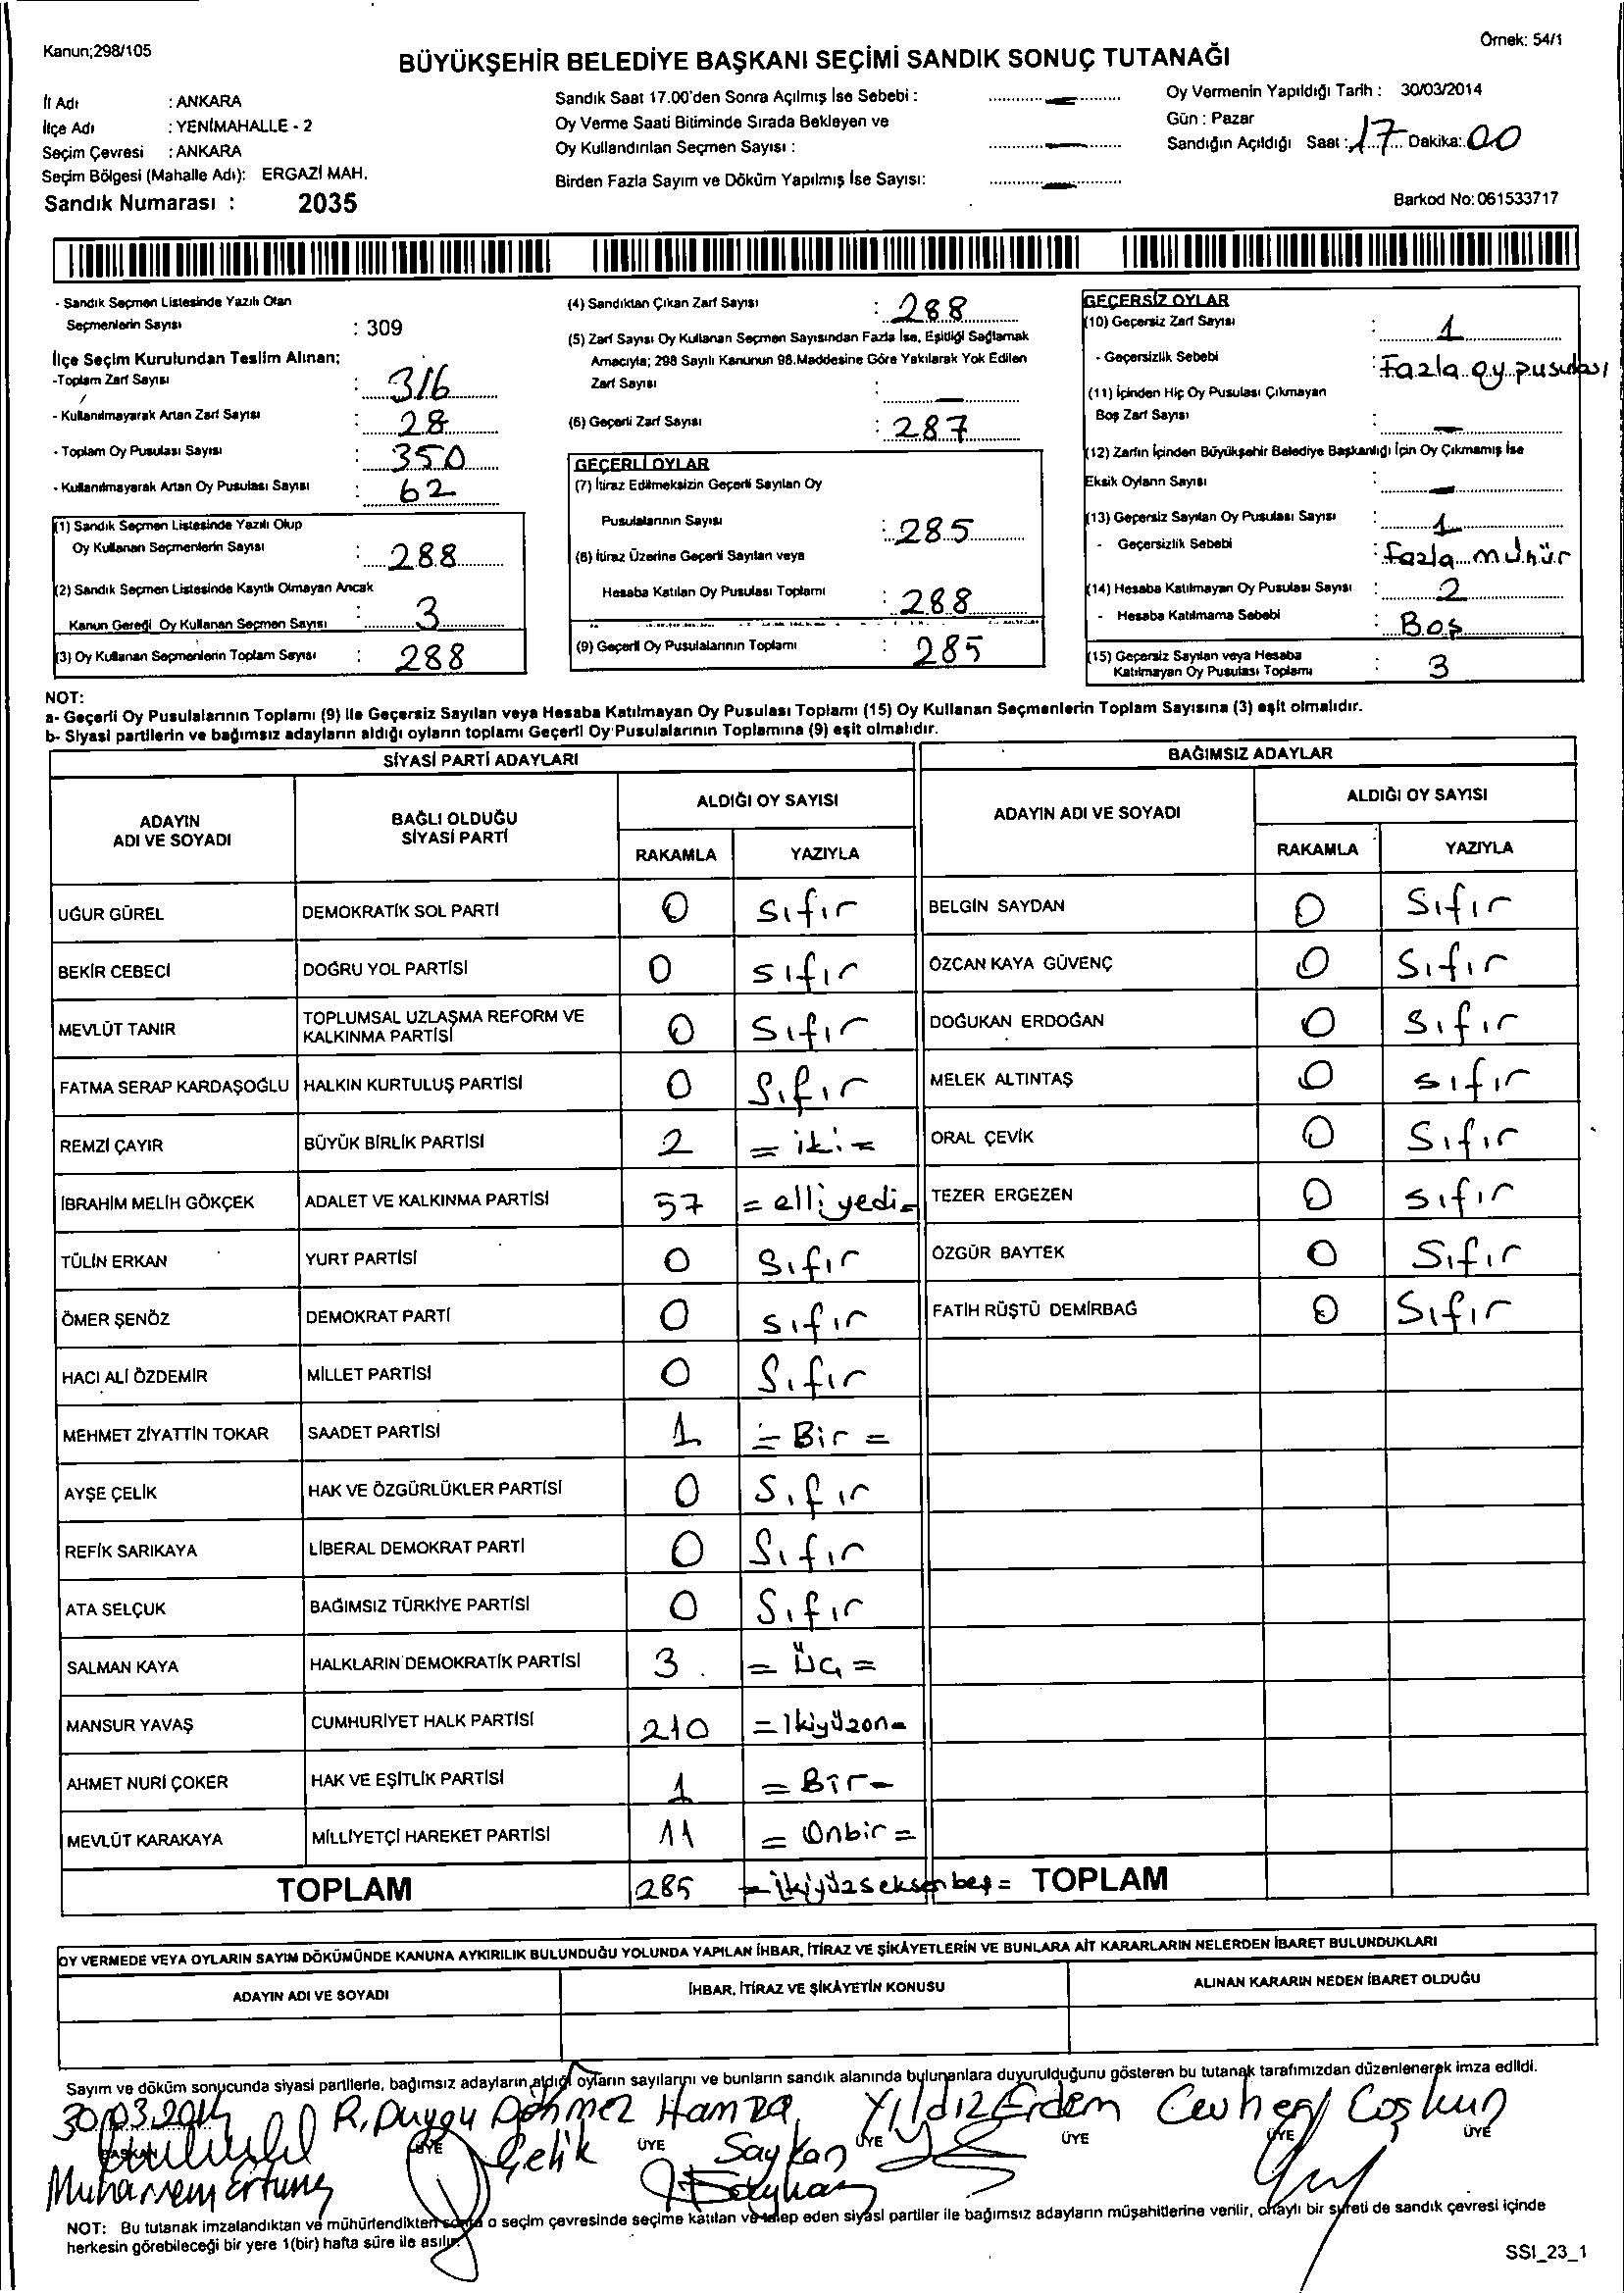 Kanun;298/105
Örnek: 54/1
BÜYÜKŞEHİR BELEDİYE BAŞKANI SEÇİMİ SANDIK SONUÇ TUTANAĞI
İl Adı : ANKARA
İlçe Adı : YENİMAHALLE - 2
Seçim Çevresi : ANKARA
Seçim Bölgesi (Mahalle Adı): ERGAZİ MAH.
Sandık Numarası : 2035
Sandık Saat 17.00'den Sonra Açılmış İse Sebebi :
Oy Verme Saati Bitiminde Sırada Bekleyen ve
Oy Kullandırılan Seçmen Sayısı :
Birden Fazla Sayım ve Döküm Yapılmış İse Sayısı:
Oy Vermenin Yapıldığı Tarih : 30/03/2014
Gün : Pazar
Sandığın Açıldığı Saat : 17 Dakika: 00
Barkod No: 061533717
- Sandık Seçmen Listesinde Yazılı Olan
Seçmenlerin Sayısı : 309
İlçe Seçim Kurulundan Teslim Alınan;
-Toplam Zarf Sayısı : 316
- Kullanılmayarak Artan Zarf Sayısı : 28
- Toplam Oy Pusulası Sayısı : 350
- Kullanılmayarak Artan Oy Pusulası Sayısı : 62
(1) Sandık Seçmen Listesinde Yazılı Olup
Oy Kullanan Seçmenlerin Sayısı : 288
(2) Sandık Seçmen Listesinde Kayıtlı Olmayan Ancak
Kanun Gereği Oy Kullanan Seçmen Sayısı : 3
(3) Oy Kullanan Seçmenlerin Toplam Sayısı : 288
(4) Sandıktan Çıkan Zarf Sayısı : 288
(5) Zarf Sayısı Oy Kullanan Seçmen Sayısından Fazla İse, Eşitliği Sağlamak
Amacıyla; 298 Sayılı Kanunun 98.Maddesine Göre Yakılarak Yok Edilen
Zarf Sayısı :
(6) Geçerli Zarf Sayısı : 287
GEÇERLİ OYLAR
(7) İtiraz Edilmeksizin Geçerli Sayılan Oy
Pusulalarının Sayısı : 285
(8) İtiraz Üzerine Geçerli Sayılan veya
Hesaba Katılan Oy Pusulası Toplamı : 288
(9) Geçerli Oy Pusulalarının Toplamı : 285
GEÇERSİZ OYLAR
(10) Geçersiz Zarf Sayısı : 1
- Geçersizlik Sebebi : Fazla oy pusulası
(11) İçinden Hiç Oy Pusulası Çıkmayan
Boş Zarf Sayısı : -
(12) Zarfın İçinden Büyükşehir Belediye Başkanlığı İçin Oy Çıkmamış İse
Eksik Oyların Sayısı : -
(13) Geçersiz Sayılan Oy Pusulası Sayısı : 1
- Geçersizlik Sebebi : fazla mühür
(14) Hesaba Katılmayan Oy Pusulası Sayısı : 2
- Hesaba Katılmama Sebebi : Boş
(15) Geçersiz Sayılan veya Hesaba
Katılmayan Oy Pusulası Toplamı : 3
NOT:
a- Geçerli Oy Pusulalarının Toplamı (9) ile Geçersiz Sayılan veya Hesaba Katılmayan Oy Pusulası Toplamı (15) Oy Kullanan Seçmenlerin Toplam Sayısına (3) eşit olmalıdır.
b- Siyasi partilerin ve bağımsız adayların aldığı oyların toplamı Geçerli Oy Pusulalarının Toplamına (9) eşit olmalıdır.
SİYASİ PARTİ ADAYLARI
ADAYIN ADI VE SOYADI BAĞLI OLDUĞU SİYASİ PARTİ ALDIĞI OY SAYISI
RAKAMLA YAZIYLA
UĞUR GÜREL DEMOKRATİK SOL PARTİ 0 sıfır
BEKİR CEBECİ DOĞRU YOL PARTİSİ 0 sıfır
MEVLÜT TANIR TOPLUMSAL UZLAŞMA REFORM VE KALKINMA PARTİSİ 0 sıfır
FATMA SERAP KARDAŞOĞLU HALKIN KURTULUŞ PARTİSİ 0 Sıfır
REMZİ ÇAYIR BÜYÜK BİRLİK PARTİSİ 2 = iki =
İBRAHİM MELİH GÖKÇEK ADALET VE KALKINMA PARTİSİ 57 = elli yedi =
TÜLİN ERKAN YURT PARTİSİ 0 Sıfır
ÖMER ŞENÖZ DEMOKRAT PARTİ 0 sıfır
HACI ALİ ÖZDEMİR MİLLET PARTİSİ 0 Sıfır
MEHMET ZİYATTİN TOKAR SAADET PARTİSİ 1 = Bir =
AYŞE ÇELİK HAK VE ÖZGÜRLÜKLER PARTİSİ 0 Sıfır
REFİK SARIKAYA LİBERAL DEMOKRAT PARTİ 0 Sıfır
ATA SELÇUK BAĞIMSIZ TÜRKİYE PARTİSİ 0 Sıfır
SALMAN KAYA HALKLARIN DEMOKRATİK PARTİSİ 3 = Üç =
MANSUR YAVAŞ CUMHURİYET HALK PARTİSİ 210 = İkiyüzon =
AHMET NURİ ÇOKER HAK VE EŞİTLİK PARTİSİ 1 = Bir =
MEVLÜT KARAKAYA MİLLİYETÇİ HAREKET PARTİSİ 11 = Onbir =
TOPLAM 285 = İkiyüzseksenbeş =
BAĞIMSIZ ADAYLAR
ADAYIN ADI VE SOYADI ALDIĞI OY SAYISI
RAKAMLA YAZIYLA
BELGİN SAYDAN 0 Sıfır
ÖZCAN KAYA GÜVENÇ 0 Sıfır
DOĞUKAN ERDOĞAN 0 Sıfır
MELEK ALTINTAŞ 0 sıfır
ORAL ÇEVİK 0 Sıfır
TEZER ERGEZEN 0 sıfır
ÖZGÜR BAYTEK 0 Sıfır
FATİH RÜŞTÜ DEMİRBAĞ 0 Sıfır
TOPLAM
OY VERMEDE VEYA OYLARIN SAYIM DÖKÜMÜNDE KANUNA AYKIRILIK BULUNDUĞU YOLUNDA YAPILAN İHBAR, İTİRAZ VE ŞİKÂYETLERİN VE BUNLARA AİT KARARLARIN NELERDEN İBARET BULUNDUKLARI
ADAYIN ADI VE SOYADI İHBAR, İTİRAZ VE ŞİKÂYETİN KONUSU ALINAN KARARIN NEDEN İBARET OLDUĞU
Sayım ve döküm sonucunda siyasi partilerle, bağımsız adayların aldığı oyların sayılarını ve bunların sandık alanında bulunanlara duyurulduğunu gösteren bu tutanak tarafımızdan düzenlenerek imza edildi.
30.03.2014 R. Duygu Dönmez Hamza Yıldız Erdem Cevher Coşkun
BAŞKAN ÜYE Çelik ÜYE Saykan ÜYE ÜYE ÜYE ÜYE
Muharrem Ertunç
NOT: Bu tutanak imzalandıktan ve mühürlendikten sonra o seçim çevresinde seçime katılan ve talep eden siyasi partiler ile bağımsız adayların müşahitlerine verilir, onaylı bir sureti de sandık çevresi içinde
herkesin görebileceği bir yere 1(bir) hafta süre ile asılır.
SSI_23_1